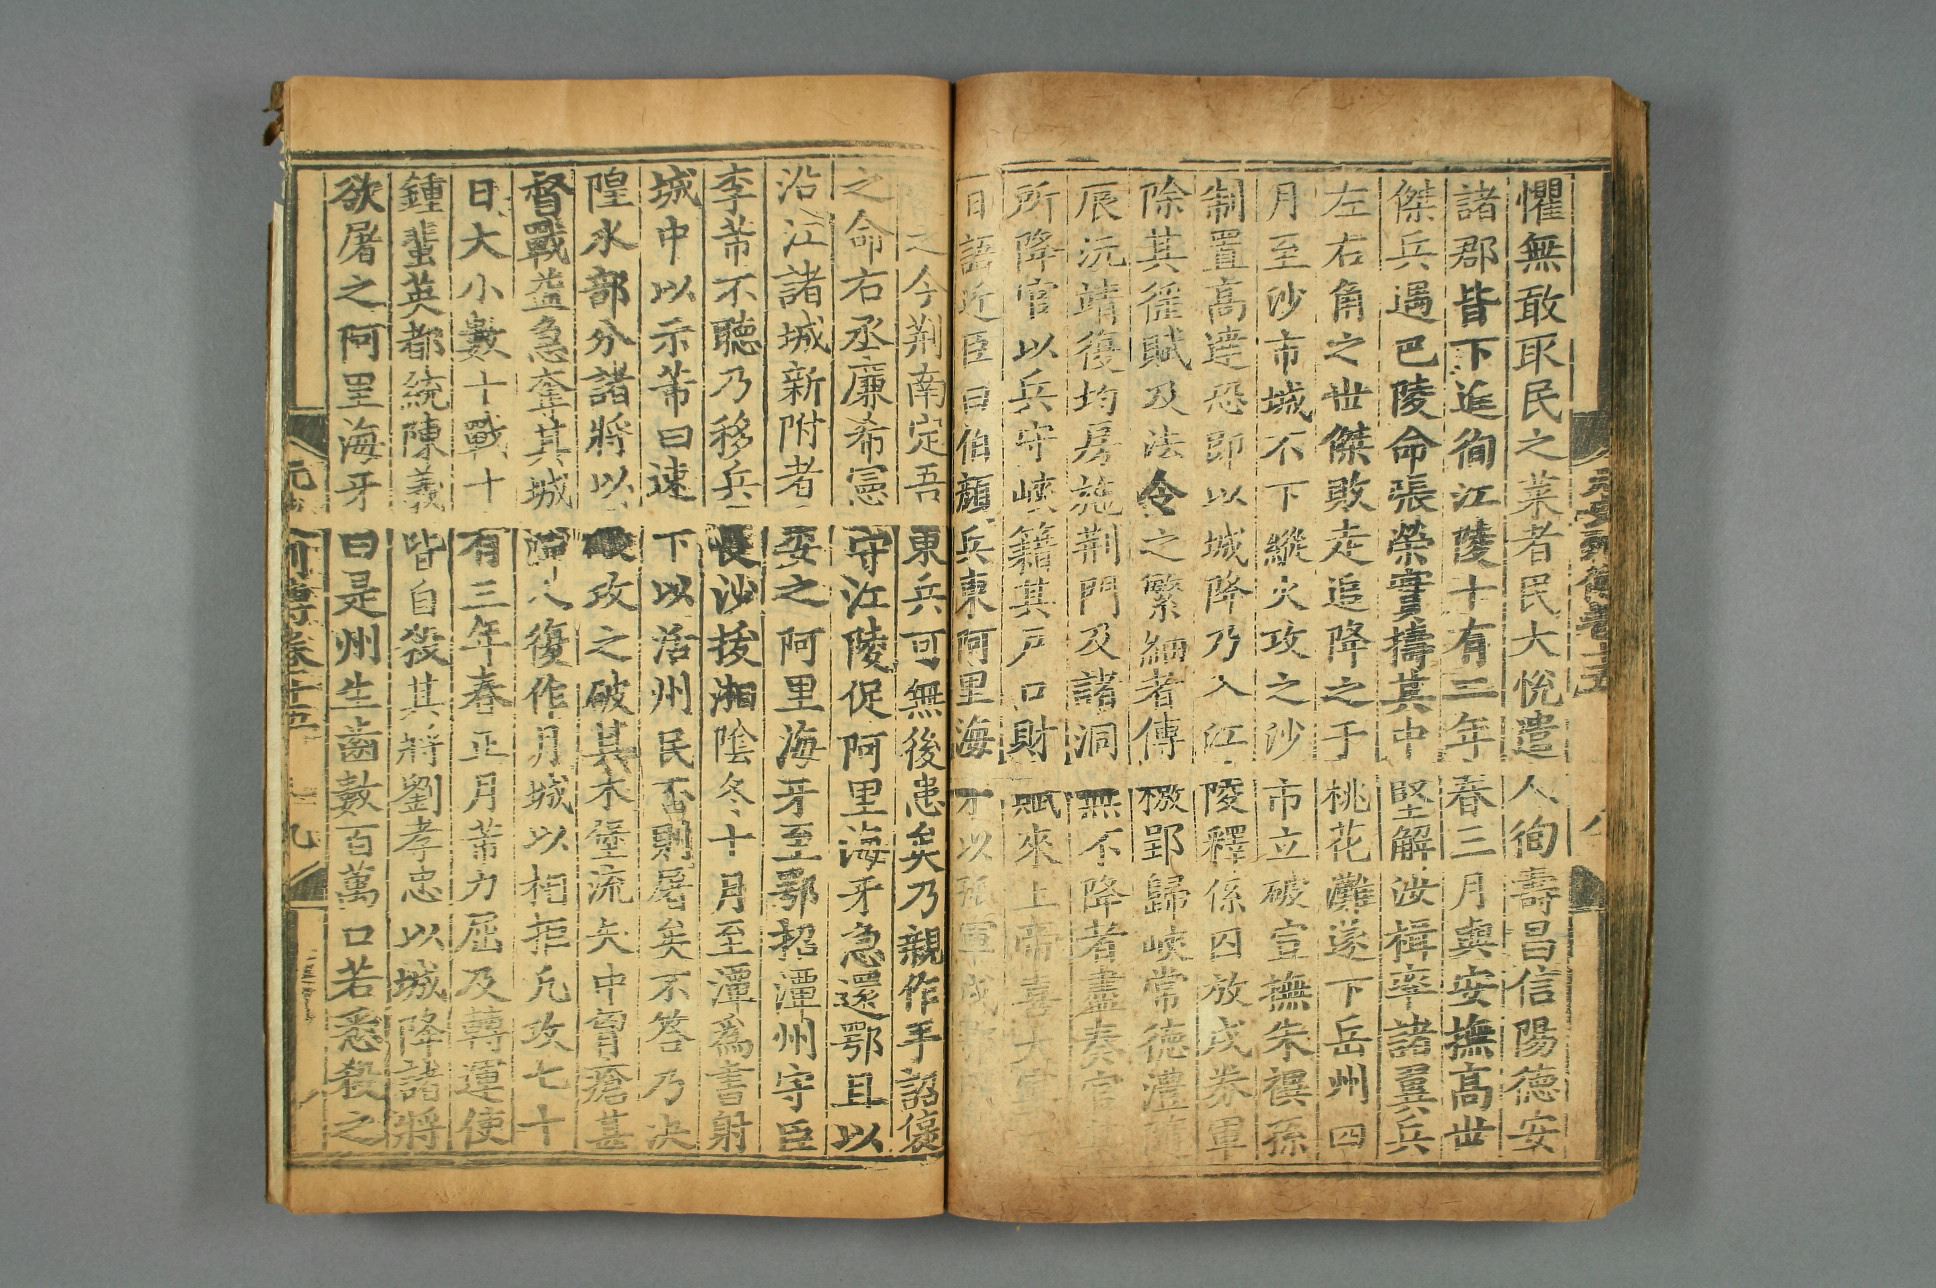 懼無敢取民之菜者民大悅遣人徇壽昌信陽德安
諸郡皆下進徇江陵十有二年春三月與安撫高世
傑兵遇巴陵命張榮實擣其中堅解汝楫率諸翼兵
左右角之世傑敗走追降之于桃花灘遂下岳州四
月至沙市城不下縱火攻之沙市立破宣撫朱禩孫
制置高達恐即以城降乃入江陵釋係囚放戍券軍
除其徭賦及法令之繁細者傳檄郢歸峽常德澧隨
辰沅靖復均房施荆門及諸洞無不降者盡奏官其
所降官以兵守峽籍其戶口財賦來上帝喜大宴三
日語近臣曰伯顏兵東阿里海牙以孤軍戍鄂
之今荆南定吾東兵可無後患矣乃親作手詔褒
之命右丞廉希憲守江陵促阿里海牙急還鄂且以
沿江諸城新附者委之阿里海牙至鄂招潭州守臣
李芾不聽乃移兵長沙拔湘陰冬十月至潭爲書射
城中以示芾曰速下以活州民否則屠矣不答乃决
隍水部分諸將以砲攻之破其木堡流矢中胷瘡甚
督戰益急奪其城潭人復作月城以相拒凡攻七十
日大小數十戰十有三年春正月芾力屈及轉運使
鍾蜚英都統陳義皆自殺其將劉孝忠以城降諸將
欲屠之阿里海牙曰是州生齒數百萬口若悉殺之
列傳卷十五
九